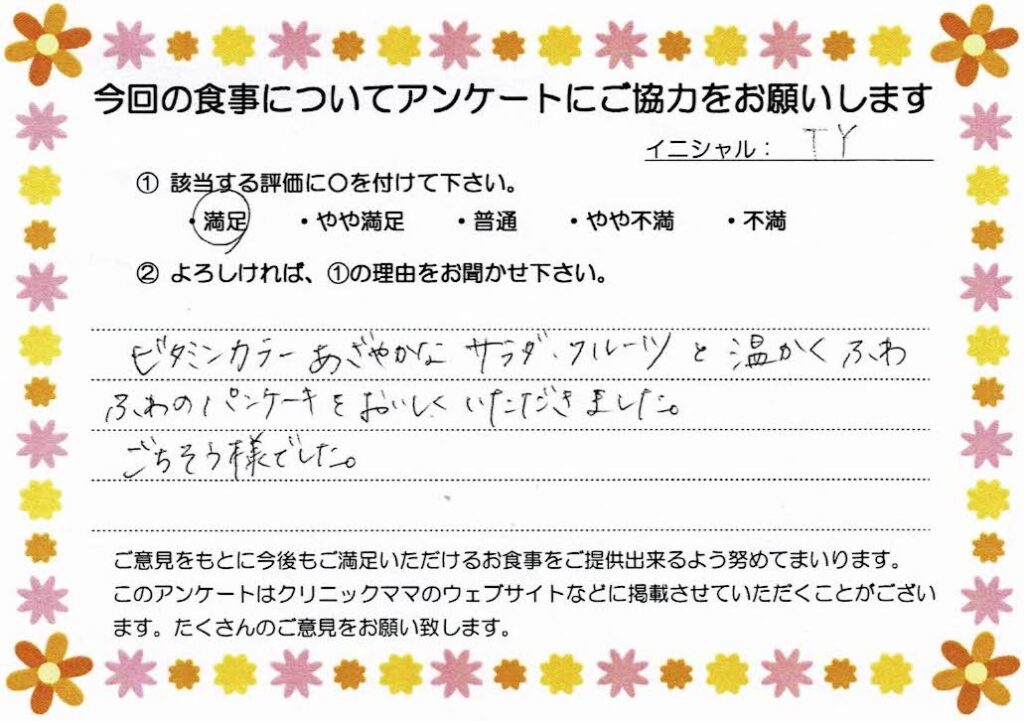 今回の食事についてアンケートにご協力をお願いします
イニシャル： TY
① 該当する評価に〇を付けて下さい。
・満足 ・やや満足 ・普通 ・やや不満 ・不満
② よろしければ、①の理由をお聞かせ下さい。
ビタミンカラーあざやかな サラダ、フルーツ と 温かく ふわ
ふわの パンケーキを おいしく いただきました。
ごちそう様でした。
ご意見をもとに今後もご満足いただけるお食事をご提供出来るよう努めてまいります。
このアンケートはクリニックママのウェブサイトなどに掲載させていただくことがござい
ます。たくさんのご意見をお願い致します。